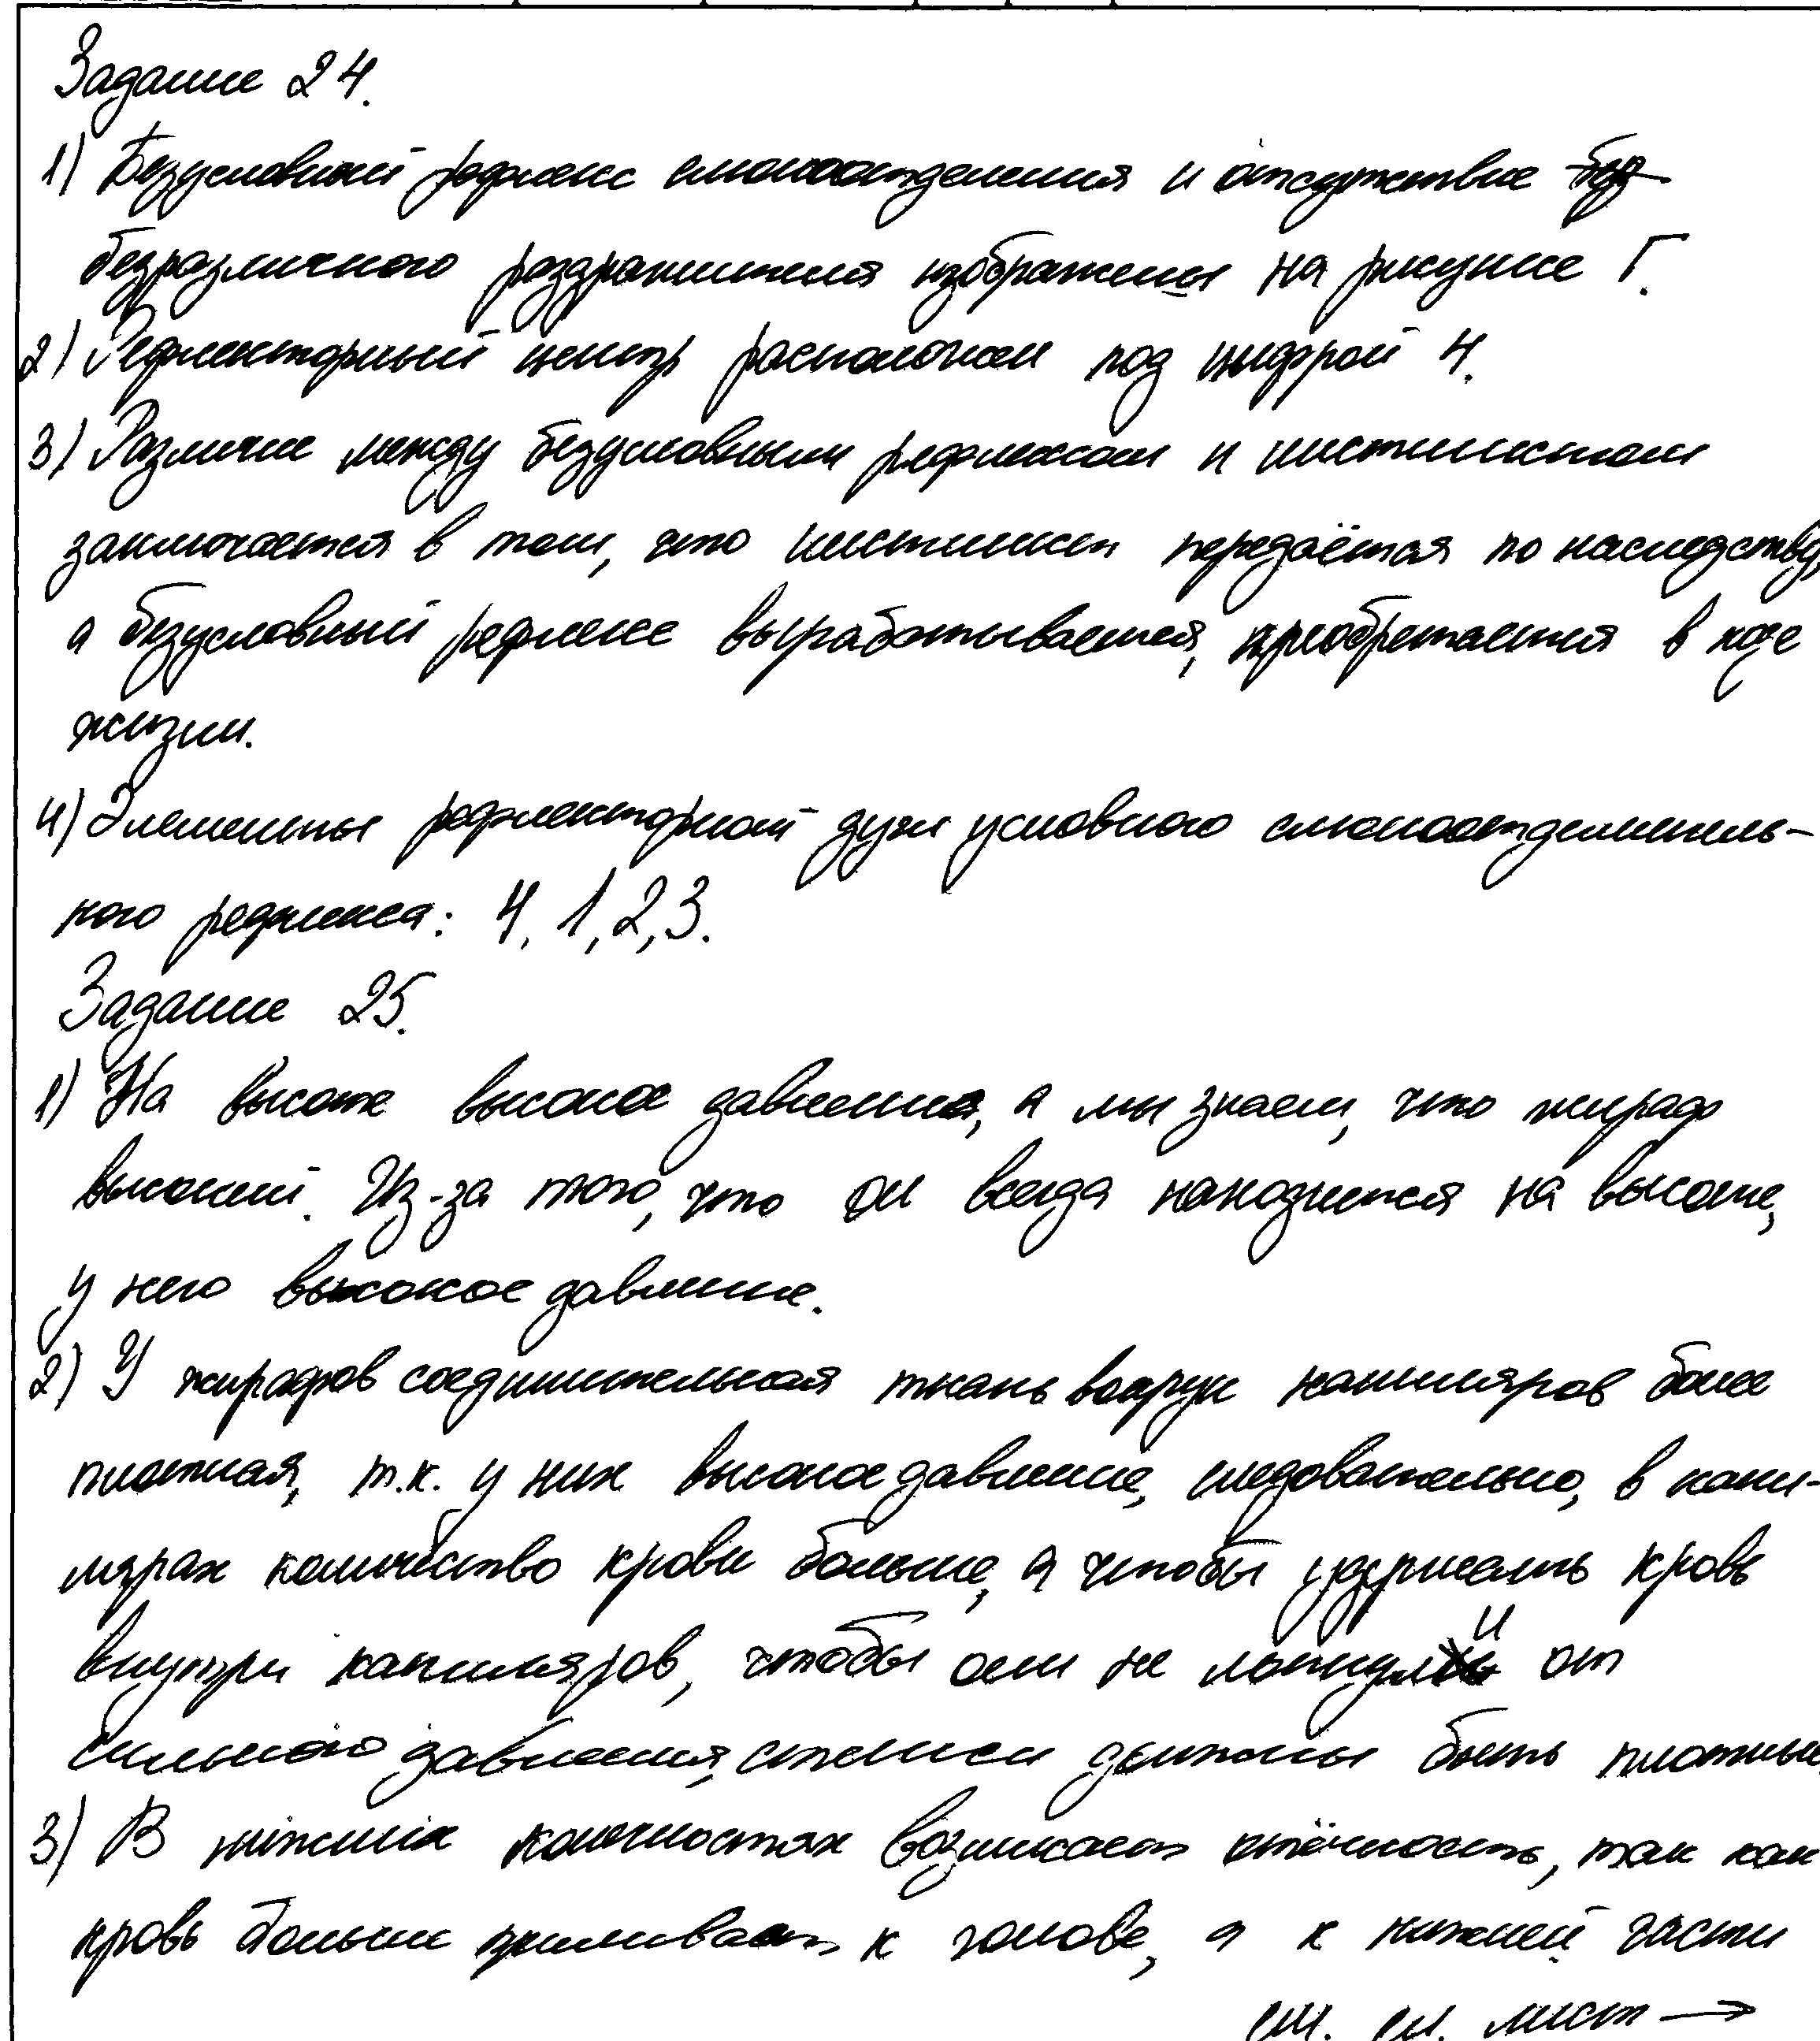 Задание 24.
1) Безусловный рефлекс слюноотделения и отсутствие
безразличного раздражителя изображены на рисунке Г.
2) Рефлекторный центр расположен под цифрой 4.
3) Различие между безусловным рефлексом и инстинктом
заключается в том, что инстинкт передаётся по наследству,
а безусловный рефлекс вырабатывается, приобретается в ходе
жизни.
4) Элементы рефлекторной дуги условного слюноотделитель-
ного рефлекса: 4, 1, 2, 3.
Задание 25.
1) На высоте высокое давление, а мы знаем, что жираф
высокий. Из-за того, что он всегда находится на высоте,
у него высокое давление.
2) У жирафов соединительная ткань вокруг капилляров более
плотная, т.к. у них высокое давление, следовательно, в капи-
лярах количество крови больше, а чтобы удержать кровь
внутри капиляров, чтобы они не лопнули от
сильного давления, стенки должны быть плотные.
3) В нижних конечностях возникает отёчность, так как
кровь больше приливает к голове, а к нижней части
см. сл. лист →